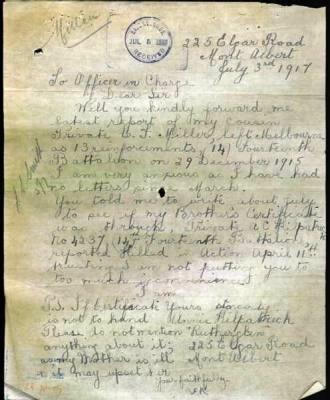 Miller
BASE RECORDS
JUL 5 1917
RECEIVED
225 Elgar Road
Mont Albert
July 3rd 1917
To Officer in Charge
Dear Sir
Will you kindly forward me
latest report of my Cousin
Private W. J. Miller, left Melbourne
as 13 reinforcements, 14 Fourteenth
Battalion on 29 December 1915
I am very anxious as I have had
no letters since March.
You told me to write about July
to see if my Brother's Certificate
was through, Private A C H
No 4237, 14th Fourteenth Battalion
reported Killed in Action April 11th
trusting I am not putting you to
too much inconvenience
I am
P.S. If Certificate Yours sincerely
is not to hand Minnie Kilpatrick
Please do not mention
anything about it; 225 Elgar Road
as my Mother is ill Mont Albert
& it may upset her
Yours faithfully